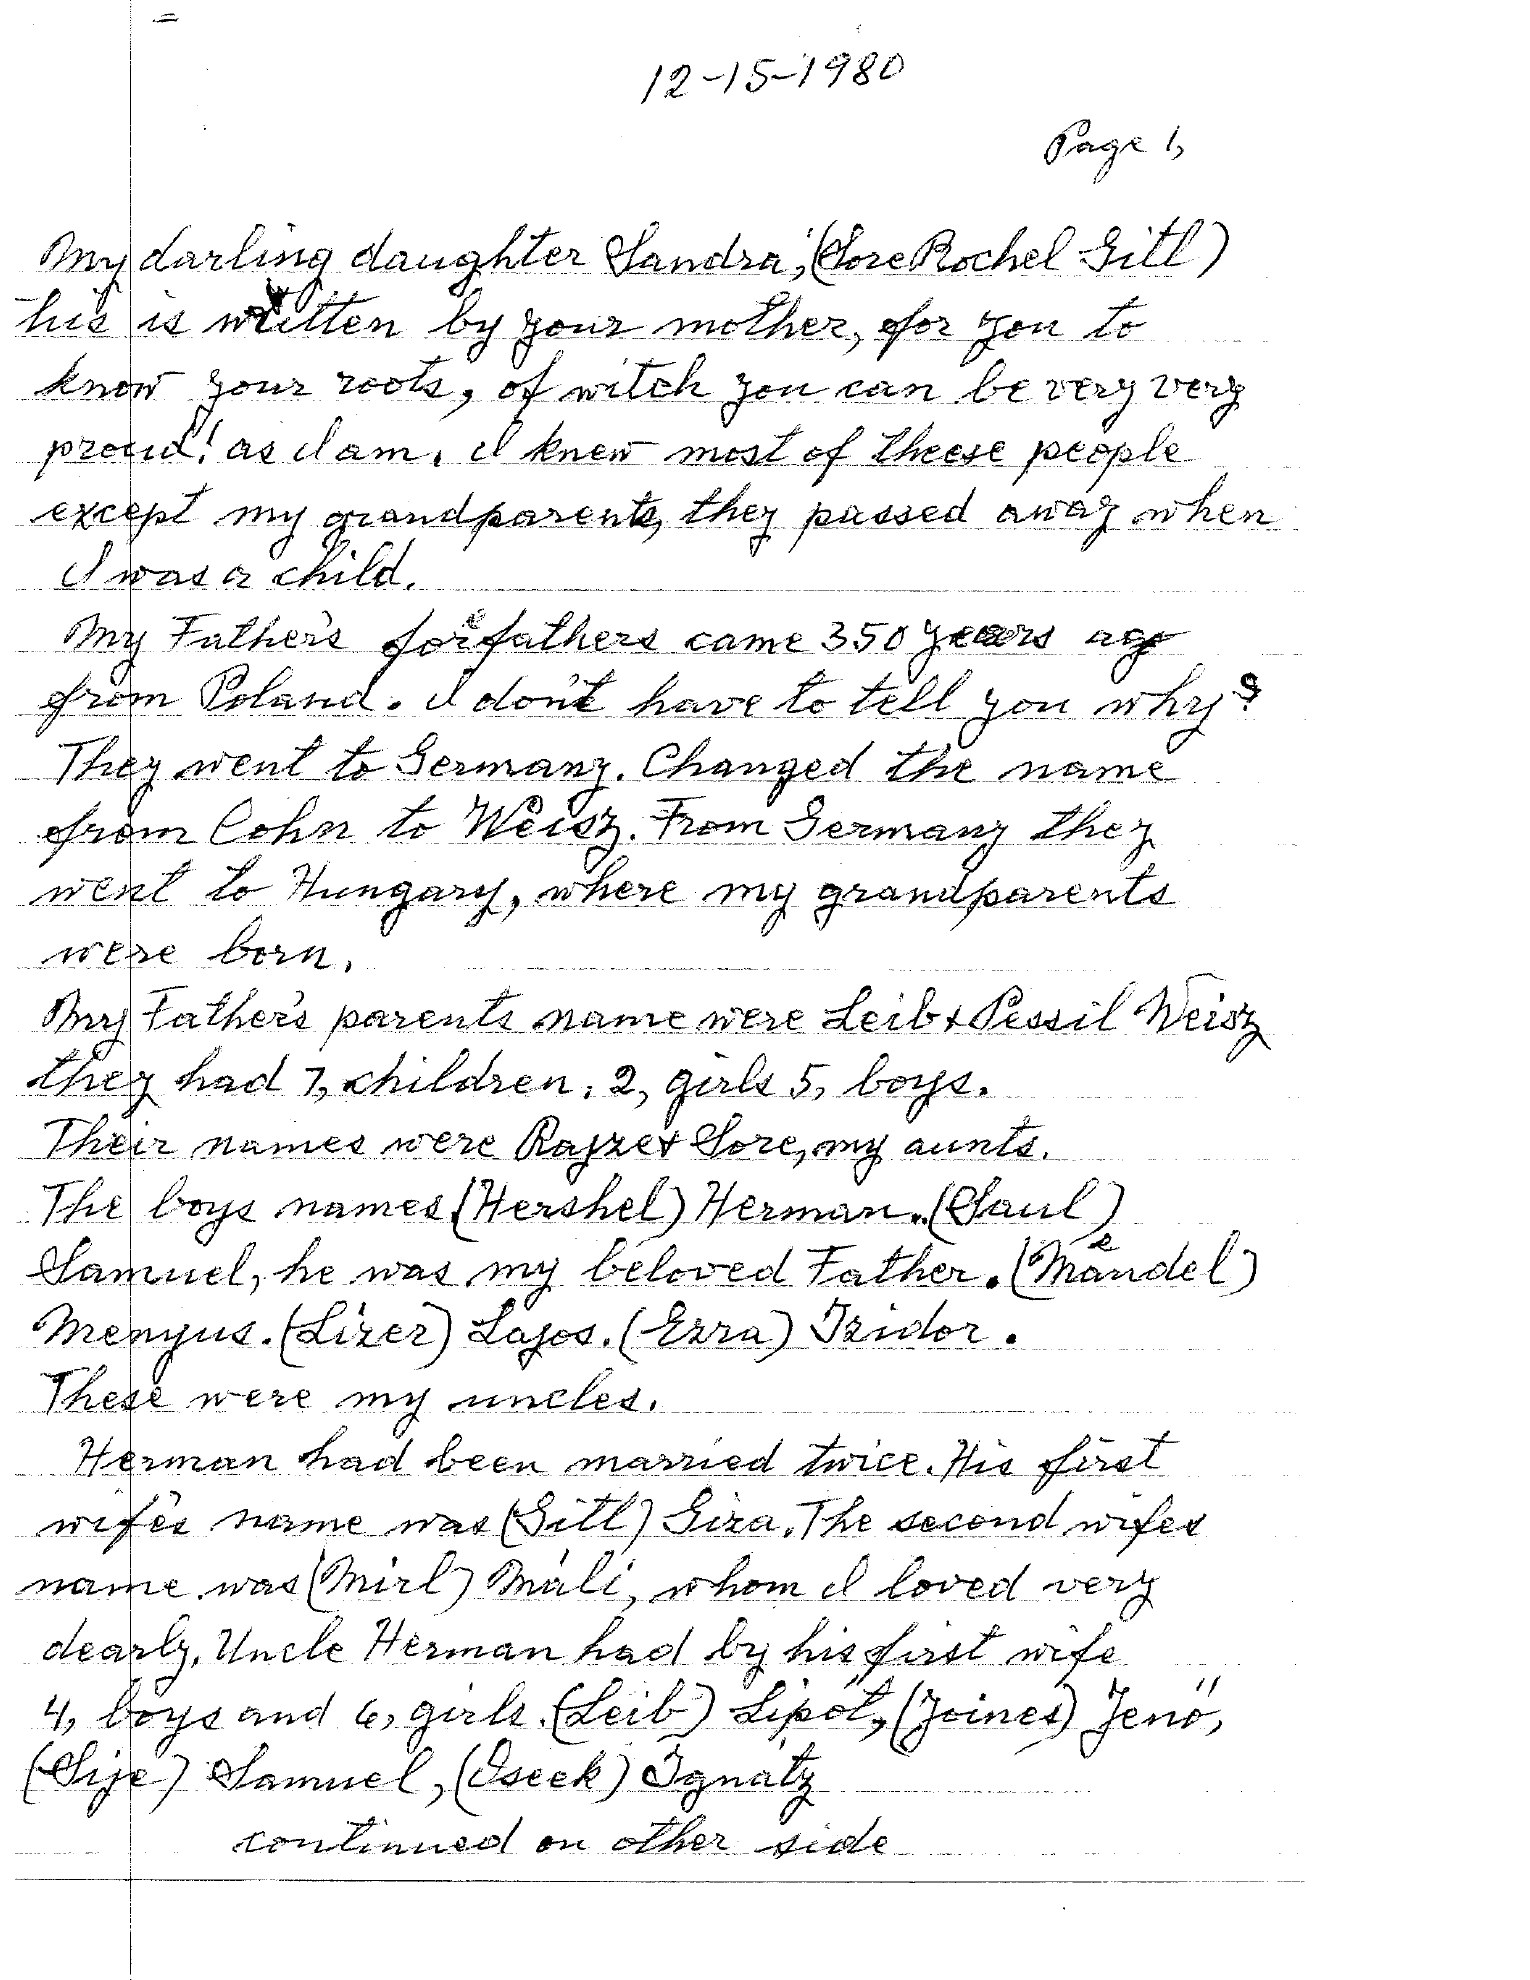 12-15-1980
Page 1,
My darling daughter Sandra, (Sore Rochel Gitl)
his is written by your mother, for you to
know your roots, of witch you can be very very
proud! as I am. I knew most of theese people
except my grandparents, they passed away when
I was a child.
My Father's forefathers came 350 years ago
from Poland. I don't have to tell you why?
They went to Germany. Changed the name
from Cohn to Weisz. From Germany they
went to Hungary, where my grandparents
were born.
My Father's parents name were Leib + Pessil Weisz
they had 7, children, 2, girls 5, boys.
Their names were Rajze + Sore, my aunts.
The boys names (Hershel) Herman. (Saul)
Samuel, he was my beloved Father. (Mendel)
Menyus. (Lizer) Lajos. (Ezra) Izidor.
These were my uncles.
Herman had been married twice. His first
wife's name was (Gitl) Giza. The second wifes
name was (Mirl) Máli, whom I loved very
dearly. Uncle Herman had by his first wife
4, boys and 6, girls. (Leib) Lipót, (Joines) Jenő,
(Sije) Samuel, (Iseek) Ignátz
continued on other side